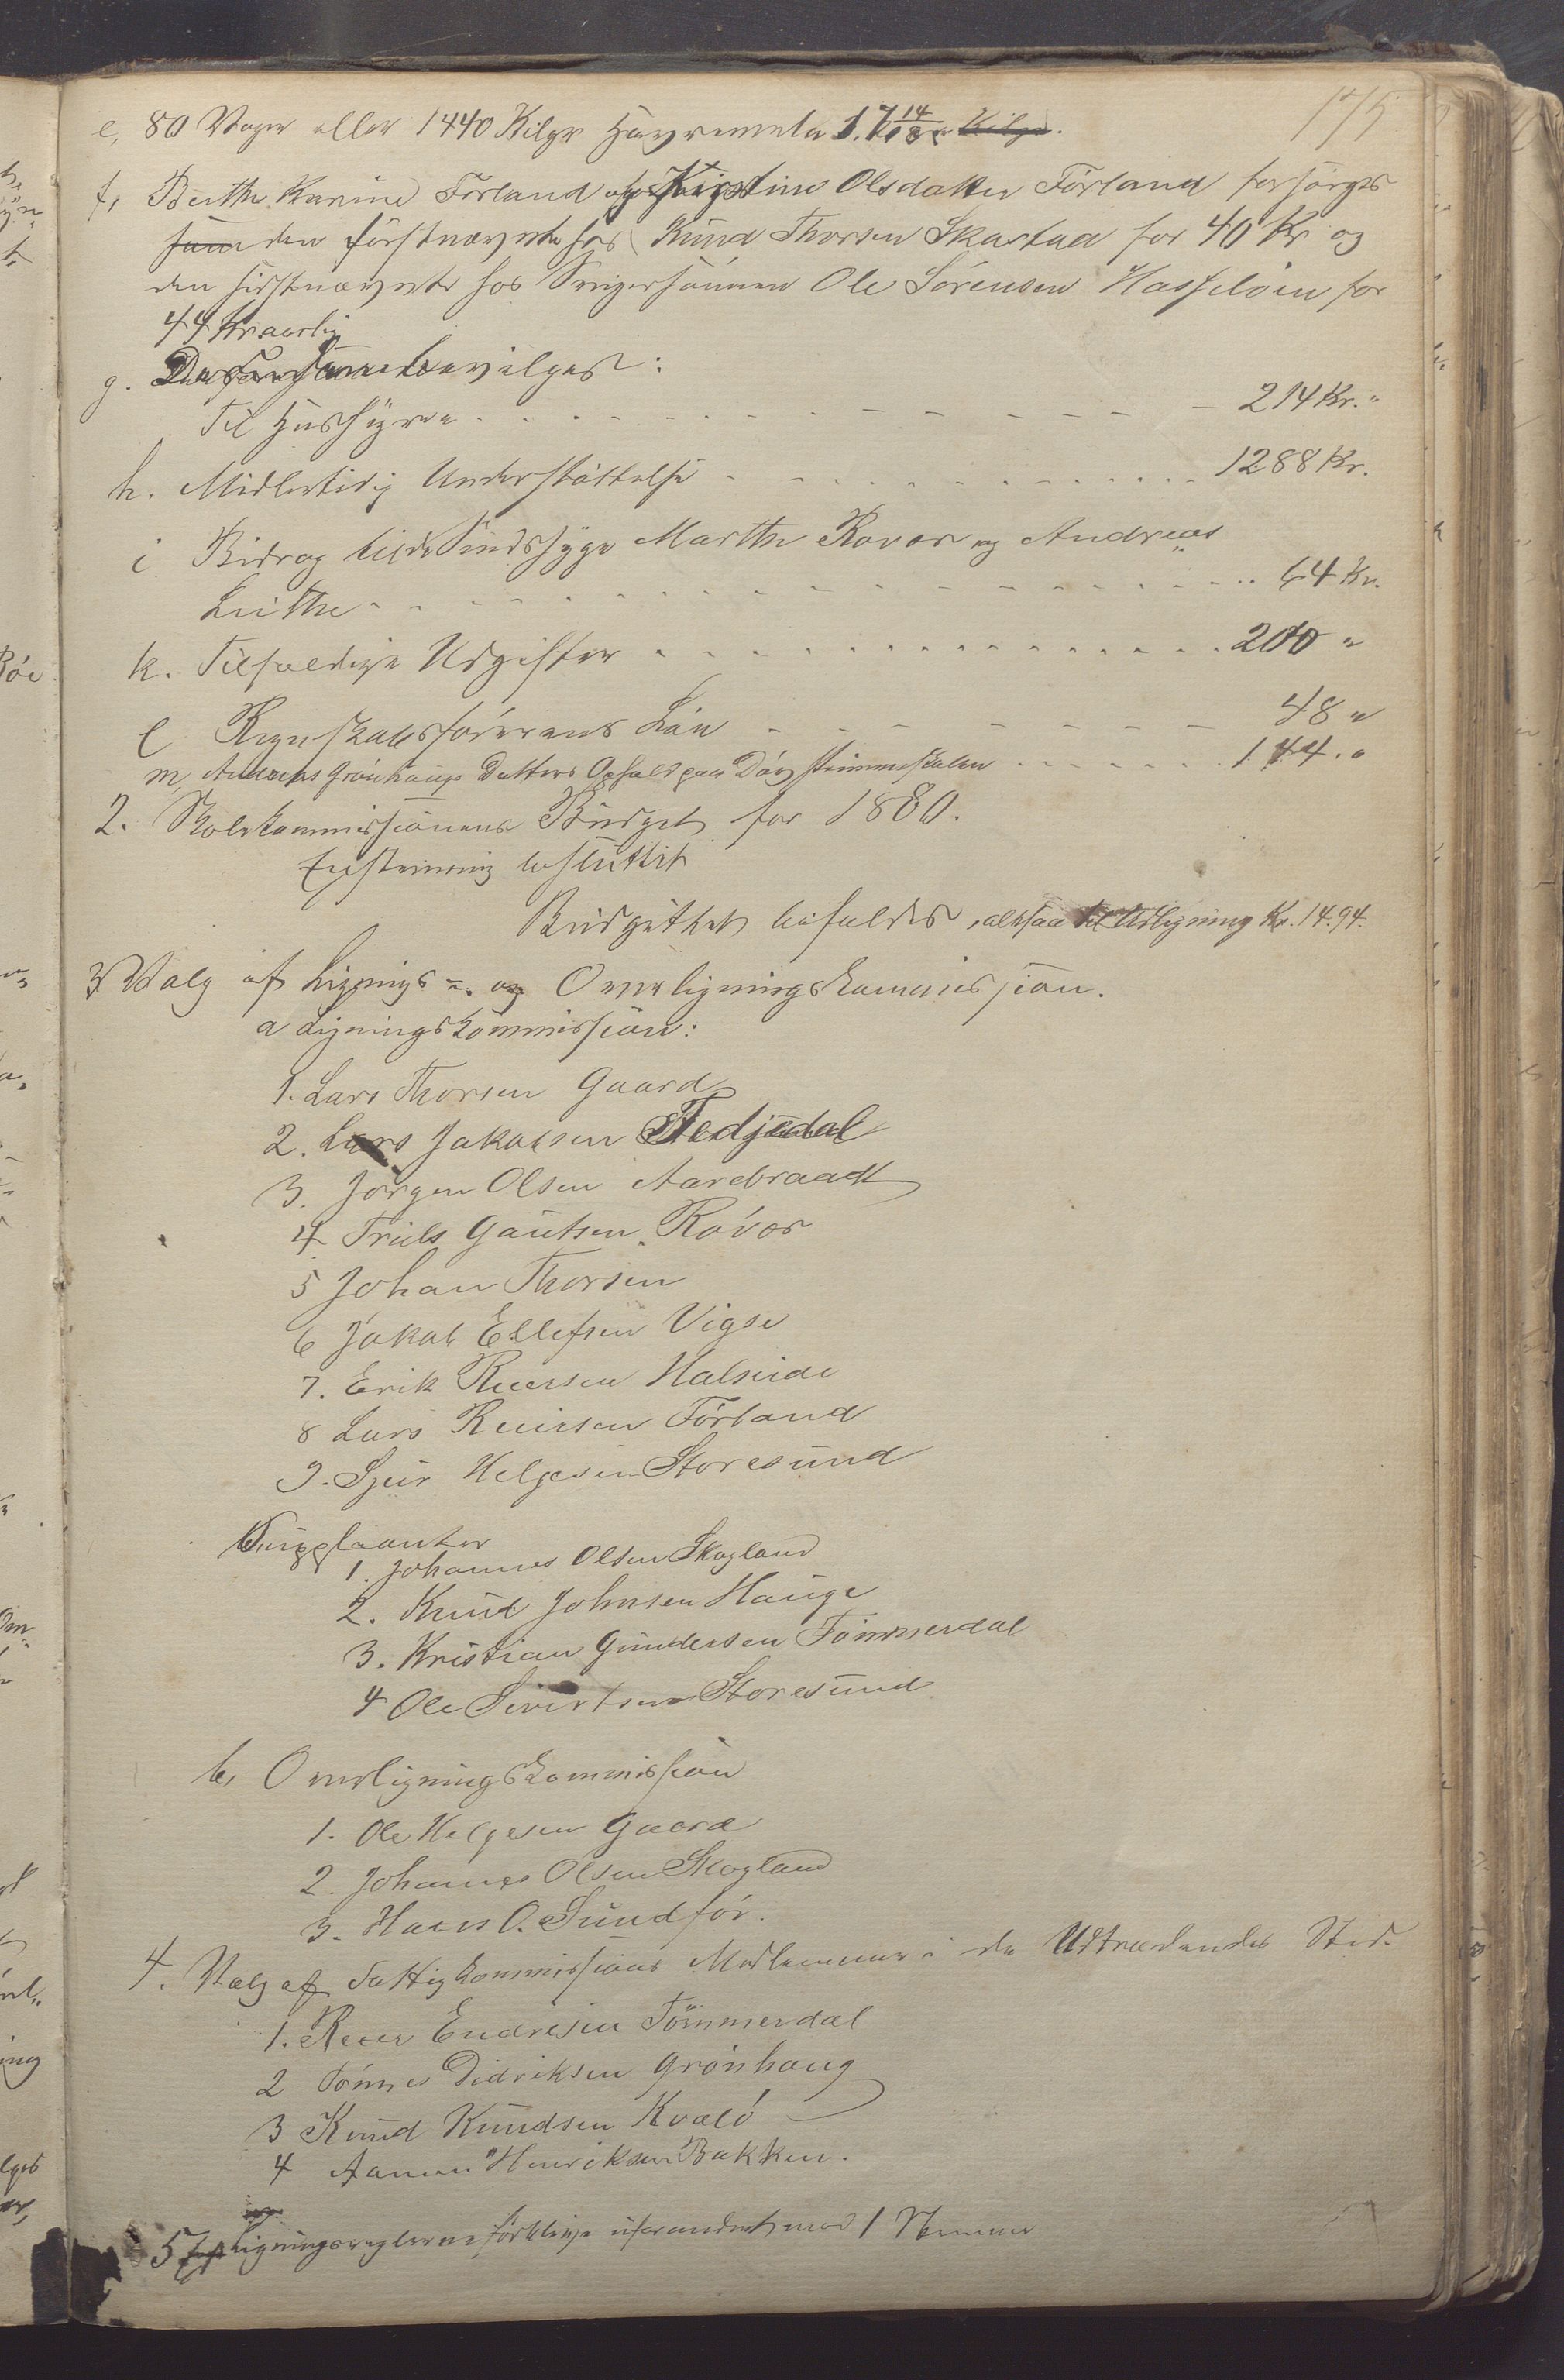 175
e, 80 Voger eller 1440 Kilgr Havremele
f, Berthe Karine Førland og Kirstine Olsdatter Førland forsørges
den førstnævnte hos Knud Thorsen Skastad for 40 Kr og
den sidstnævnte hos Svigersønnen Ole Sørensen Hasseløen for
44 Kr aarlig
g. bevilges:
Til Hushyre 214 Kr. "
h. Midlertidig Understøttelse 1288 Kr.
i Bidrag til de Sindssyge Marthe Rovær og Andreas
Lithe 64 Kr.
k. Tilfældige Udgifter 200 "
l Regnskabsførerens Løn 48 "
m, Grønhaugs Datters Ophold paa Døvstummeskolen 144. "
2. Skolekommissionens Budget for 1880.
Enstemmig besluttet
Budgettet bifaldes, altsaa til Udligning Kr. 1494.
3 Valg af Lignings- og Overligningskommission.
a Ligningskommission:
1. Lars Thorsen Gaard
2. Lars Jakobsen Fedjedal
3. Jørgen Olsen Aarebraadt
4 Triels Gautsen Røvær
5 Johan Thorsen
6 Jakob Ellefsen Vigse
7. Erik Reiersen Halseide
8 Lars Reiersen Førland
9. Sjur Helgesen Storesund
Supleanter
1. Johannes Olsen Skogland
2. Knud Johnsen Hauge
3. Kristian Gundersen Tømmerdal
4 Ole Sivertsen Storesund
b, Overligningskommission
1. Ole Helgesen Gaard
2. Johannes Olsen Skogland
3. Hans O. Sundfør.
4. Valg af Fattigkommissions Medlemmer i de Udtrædendes Sted.
1. Reier Endresen Tømmerdal
2 Tønnes Didriksen Grønhaug
3 Knud Knudsen Kvalø
4 Aamun Henriksen Bakken.
5 Ligningsreglerne uforandret mod 1 Stemme